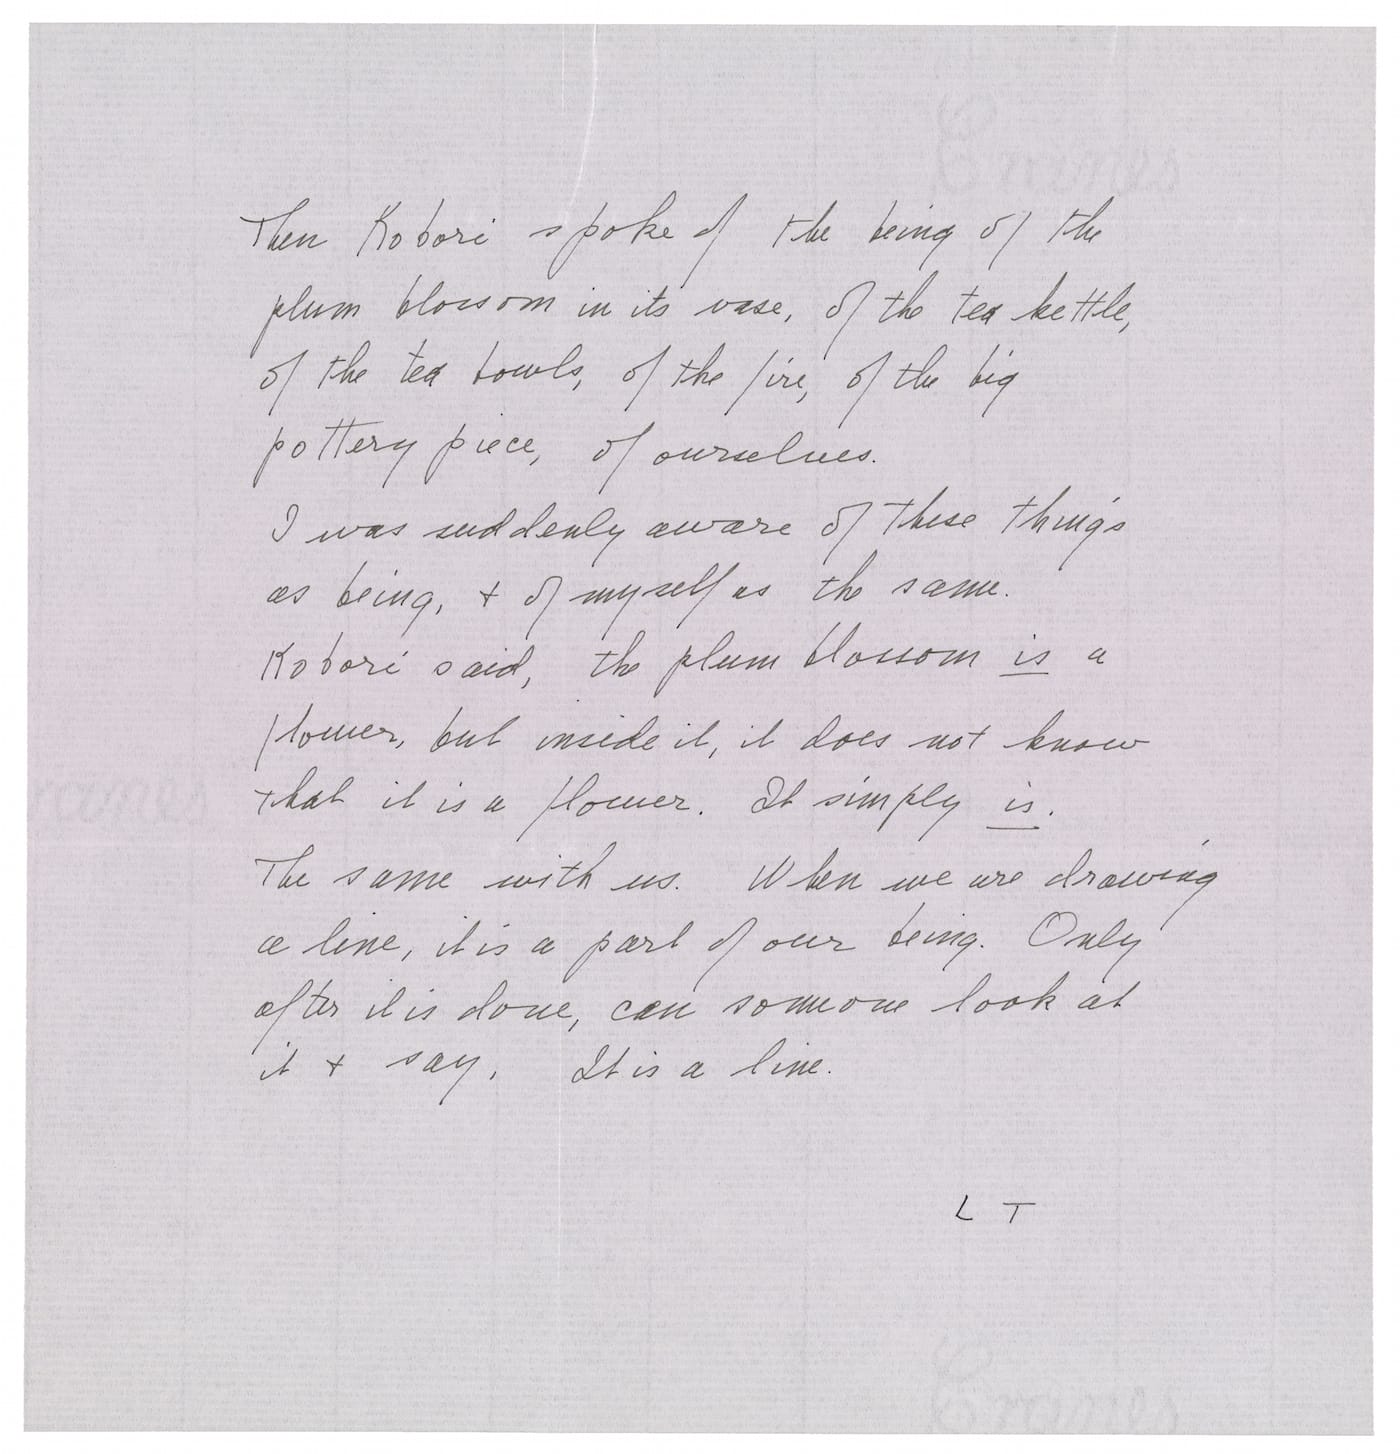 Then Kobori spoke of the being of the
plum blossom in its vase, of the tea kettle,
of the tea bowls, of the fire, of the big
pottery piece, of ourselves.
I was suddenly aware of these things
as being, + of myself as the same.
Kobori said, the plum blossom is a
flower, but inside it, it does not know
that it is a flower. It simply is.
The same with us. When we are drawing
a line, it is a part of our being. Only
after it is done, can someone look at
it + say, It is a line.
L T